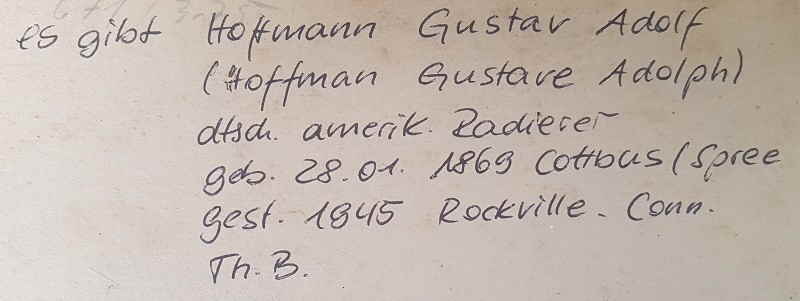 es gibt Hoffmann Gustav Adolf
(Hoffman Gustave Adolph)
dtsch. amerik. Radierer
geb. 28.01. 1869 Cottbus/Spree
gest. 1945 Rockville. Conn.
Th. B.